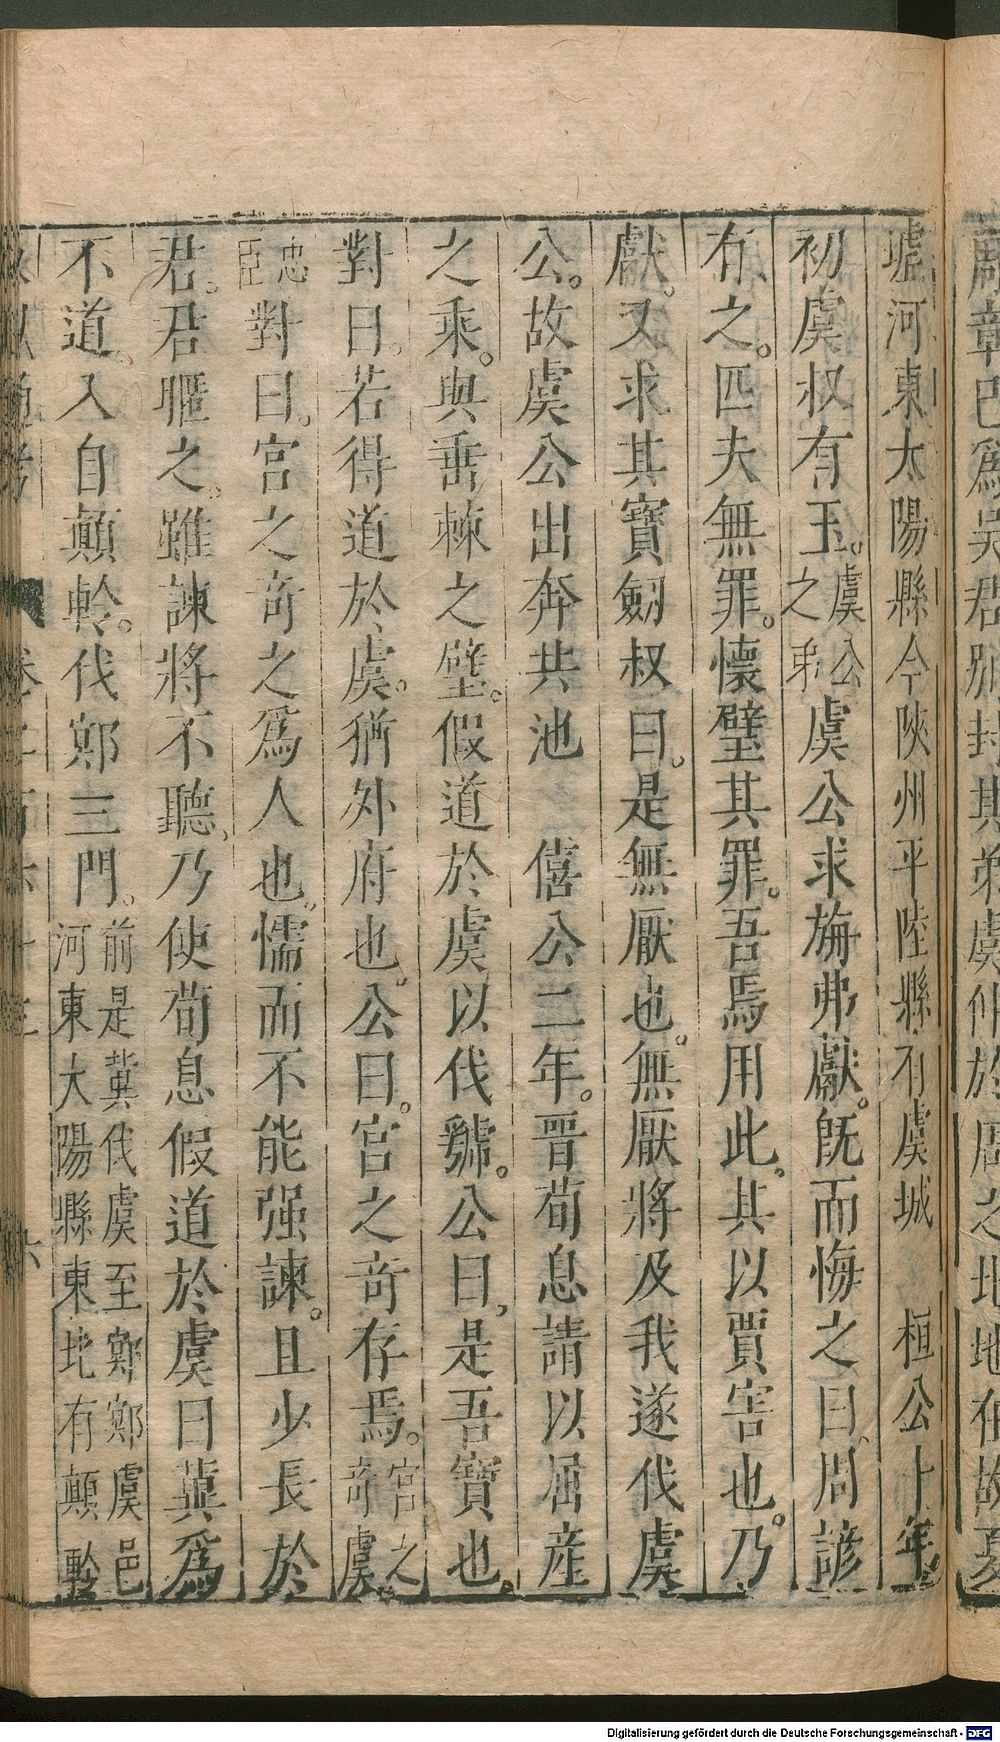 墟河東太陽縣今陝州平陸縣有虞城　桓公十年
初虞叔有玉。虞公之弟虞公求旃弗獻。旣而悔之曰、周諺
有之。匹夫無罪。懷璧其罪。吾焉用此。其以賈害也。乃
獻。又求其寶劒叔曰。是無厭也。無厭將及我遂伐虞
公。故虞公出奔共池　僖公二年。晉荀息請以屈産
之乘。與垂棘之璧。假道於虞以伐虢。公曰、是吾寶也。
對曰。若得道於虞。猶外府也。公曰。宮之奇存焉。宮之奇虞
忠臣對曰。宮之奇之爲人也。懦而不能强諫。且少長於
君。君暱之。雖諫將不聽、乃使荀息假道於虞曰冀爲
不道。入自顛軨。伐鄍三門。前是冀伐虞至鄍鄍虞邑河東大陽縣東北有顛軨
章巴爲吳君別封其弟虞仲於周之北地在故夏
Digitalisierung gefördert durch die Deutsche Forschungsgemeinschaft - DFG